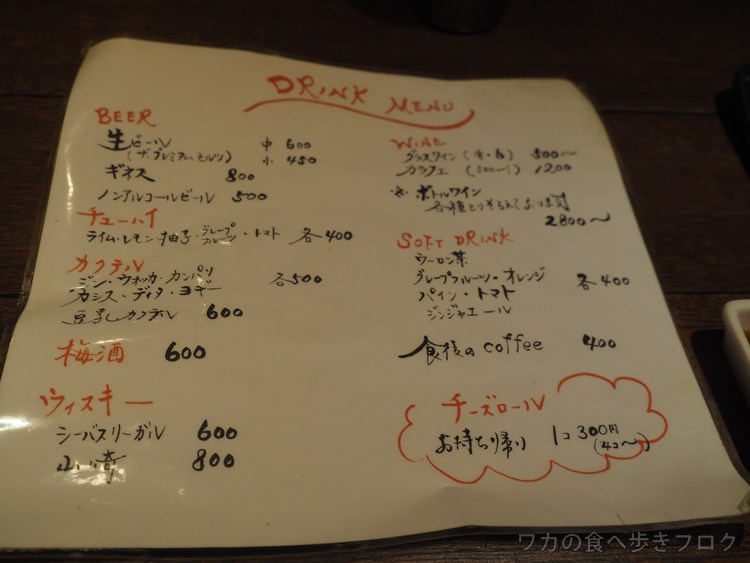 DRINK MENU
BEER
生ビール 中 600
(ザ・プレミアムモルツ) 小 450
ギネス 800
ノンアルコールビール 500
チューハイ
ライム・レモン・柚子・グレープフルーツ・トマト 各400
カクテル
ジン・ウォッカ・カンパリ 各500
カシス・ディタ・ヨギー
豆乳カクテル 600
梅酒 600
ウィスキー
シーバスリーガル 600
山崎 800
WINE
グラスワイン (赤・白) 500〜
カラフェ (500ml) 1200
※ ボトルワイン
各種とりそろえております
2800〜
SOFT DRINK
ウーロン茶
グレープフルーツ・オレンジ 各400
パイン・トマト
ジンジャエール
食後のcoffee 400
チーズロール
お持ち帰り 1コ300円
(4コ〜)
ワカの食べ歩きブログ